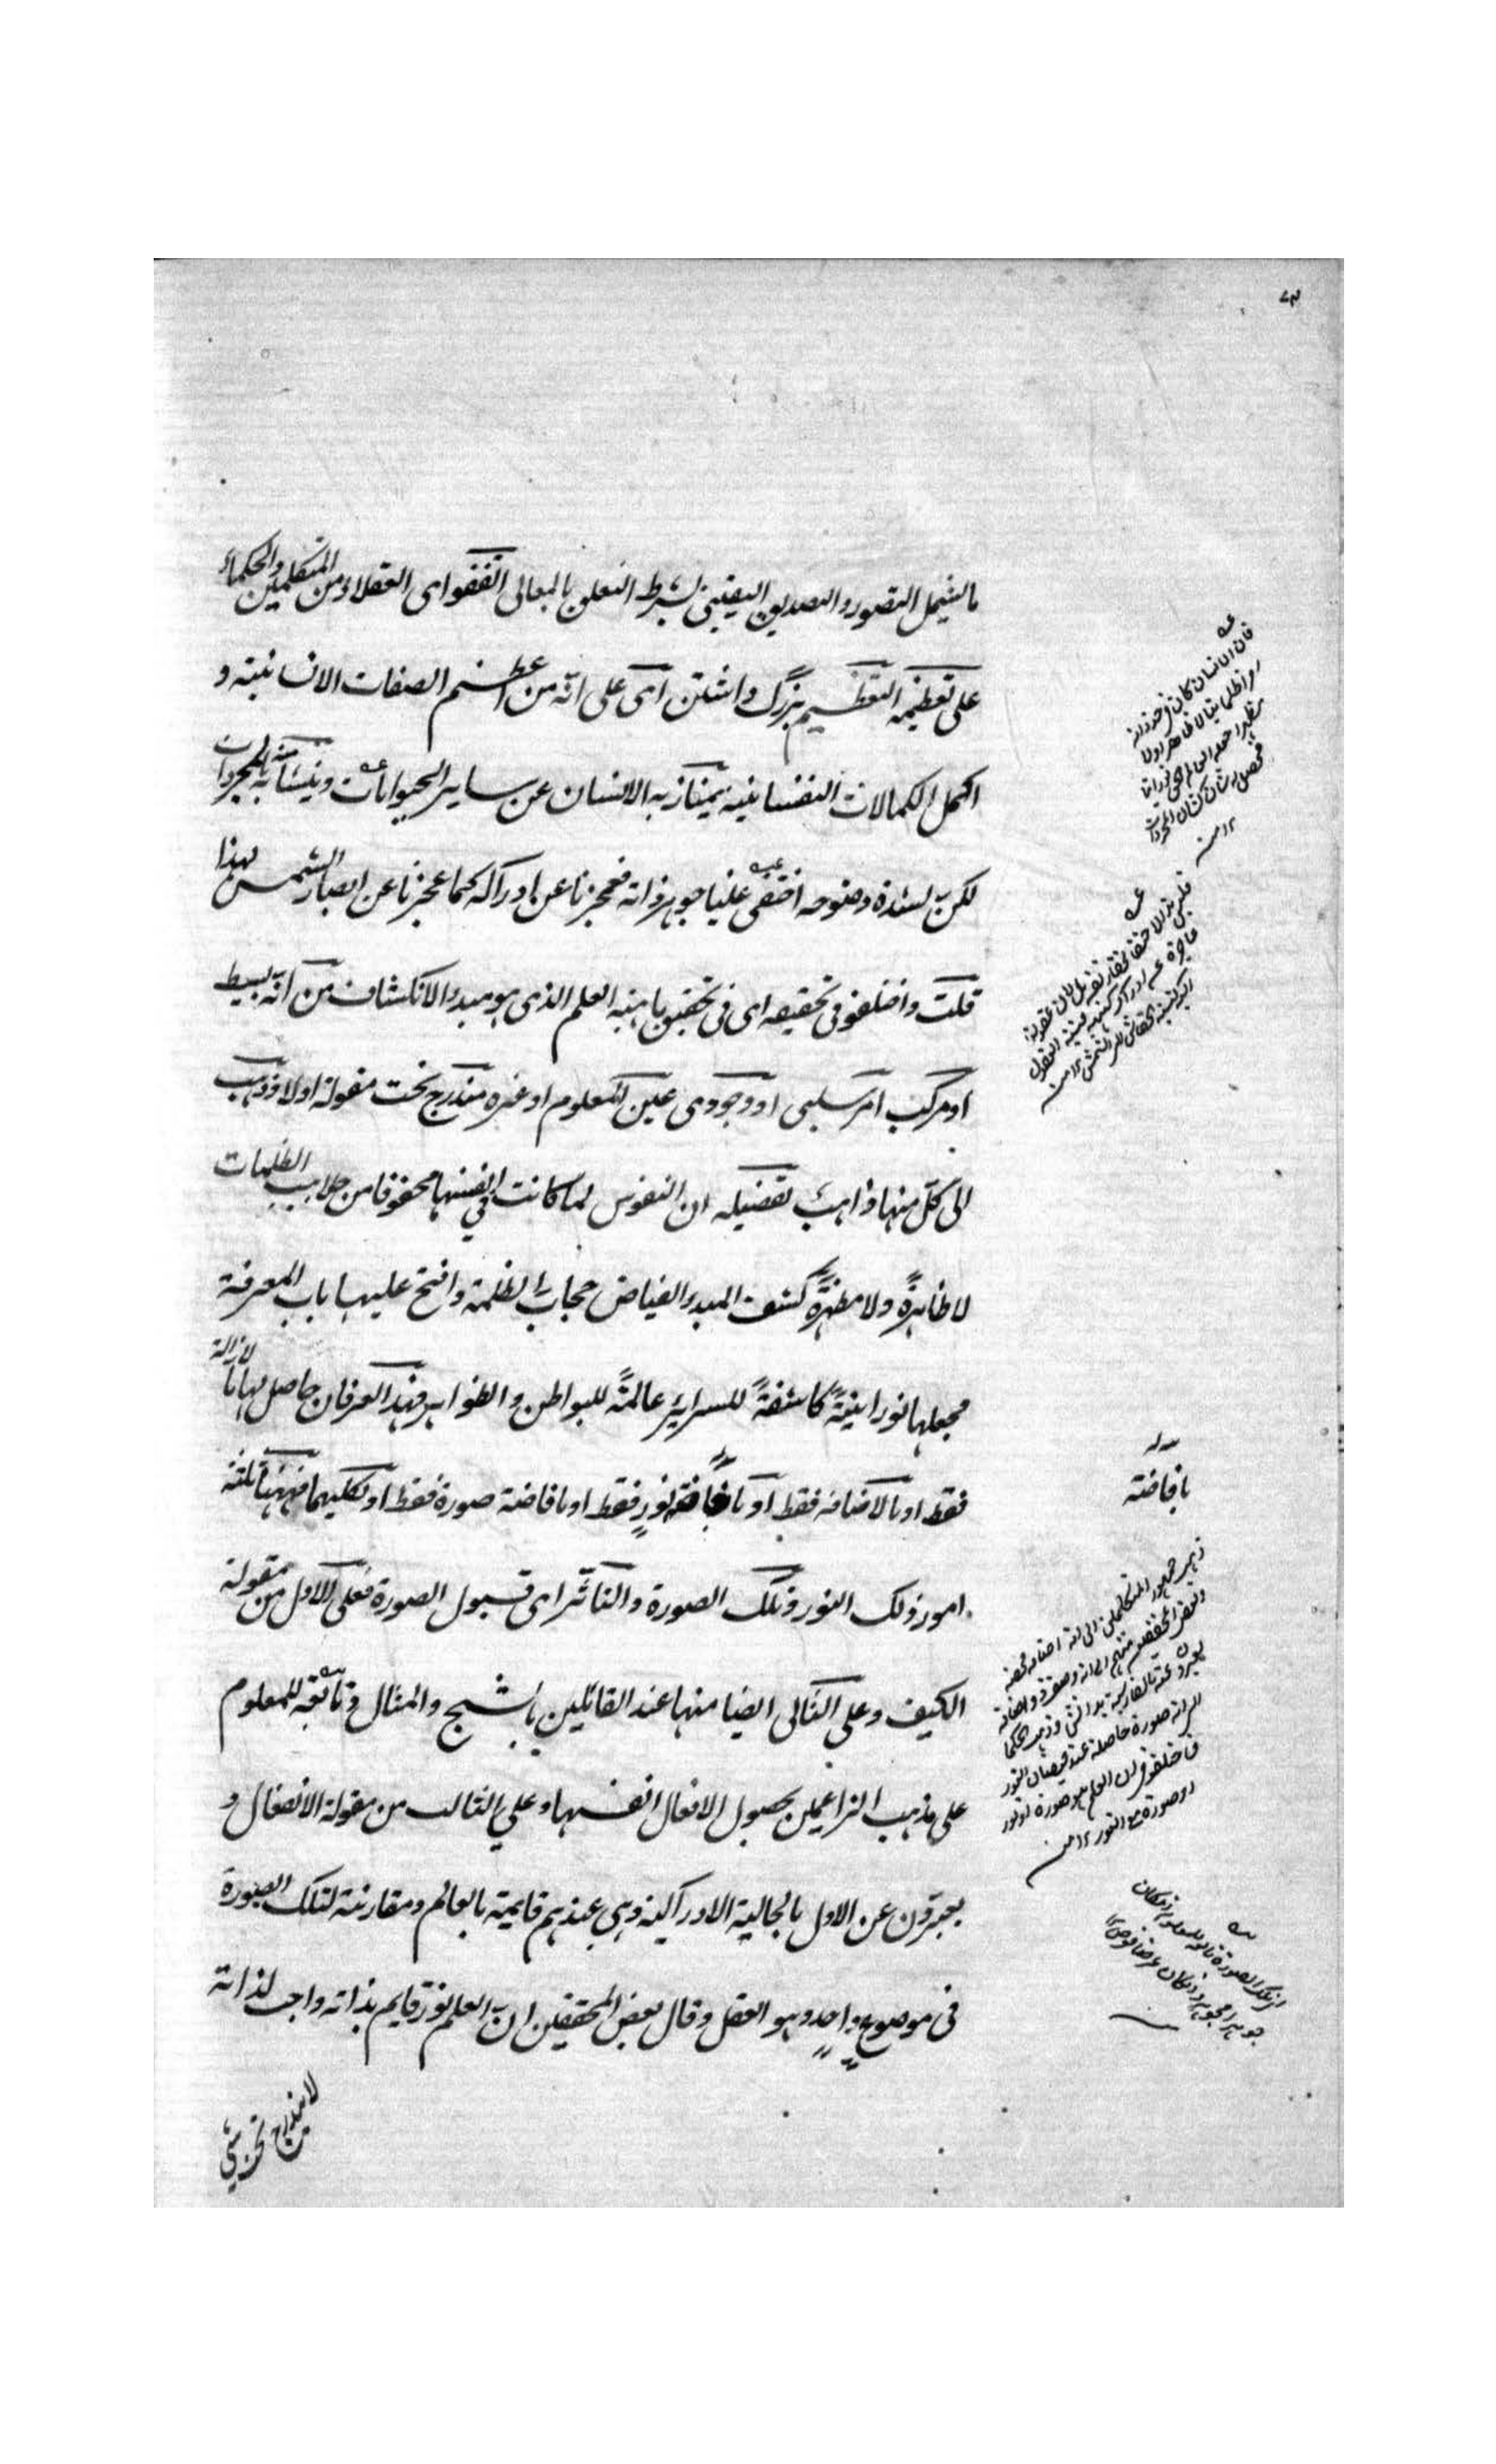 ما يشمل التصور والتصديق اليقيني بشرط التعلق بالمعالى اتفقوا اى العقلاء من المتكلمين والحكماء
على تعظيمه التعظيم بزرگ داشتن اى على انه من اعظم الصفات الانسانية و
اكمل الكمالات النفسانية يمتاز به الانسان عن ساير الحيوانات ويتشابه منه بالمجردات
لكن لشدة وضوحه اختفى علينا جوهر ذاته فعجزنا عن ادراكه كما عجزنا عن ابصار الشمس لهذا
قلت واختلفوا فى تحقيقه اى فى تحقيق ماهية العلم الذى هو مبدء الانكشاف من انه بسيط
او مركب امر سلبى او وجودى عين المعلوم او غيره مندرج تحت مقولة او لا فذهب
الى كل منها ذاهب تفصيله ان النفوس لما كانت فى انفسها محفوفا من جلابيب الظلمات
لا ظاهرةً ولا مظهرةً كشف المبدء الفياض حجاب الظلمة وافتح عليها باب المعرفة
فجعلها نورانيةً كاشفةً للسراير عالمةً للبواطن والظواهر فهذا العرفان حاصل لها بازالة
فقط او بالاضافة فقط او بافاضة نورٍ فقط او بافاضة صورة فقط او بكليهما فههنا ثلثة
امور ذلك النور وتلك الصورة والتاثر اى قبول الصورة فعلى الاول من مقولة
الكيف وعلى الثانى ايضا منها عند القائلين بالشبح والمثال وتابعة للمعلوم
على مذهب الزاعمين بحصول الافعال انفسها وعلى الثالث من مقولة الانفعال و
يعبرون عن الاول بالحالية الادراكية وهى عندهم قايمة بالعالم ومقارنة لتلك الصورة
فى موضوعٍ واحدٍ وهو العقل وقال بعض المحققين ان العلم نور قايم بذاته واجب لذاته
لا يندرج تحت شئ
فان الانسان كان فى حد ذاته
١٢ منه
بافاضة
ذهب جمهور المتكلمين الى انه اضافة محضة
وبعض المحققين منهم الى انه صفة ذو اضافة
الى انه صورة حاصلة عند فيضان النور
فاختلفوا فى ان العلم هو صورة او نور
او صورة مع النور ١٢ منه